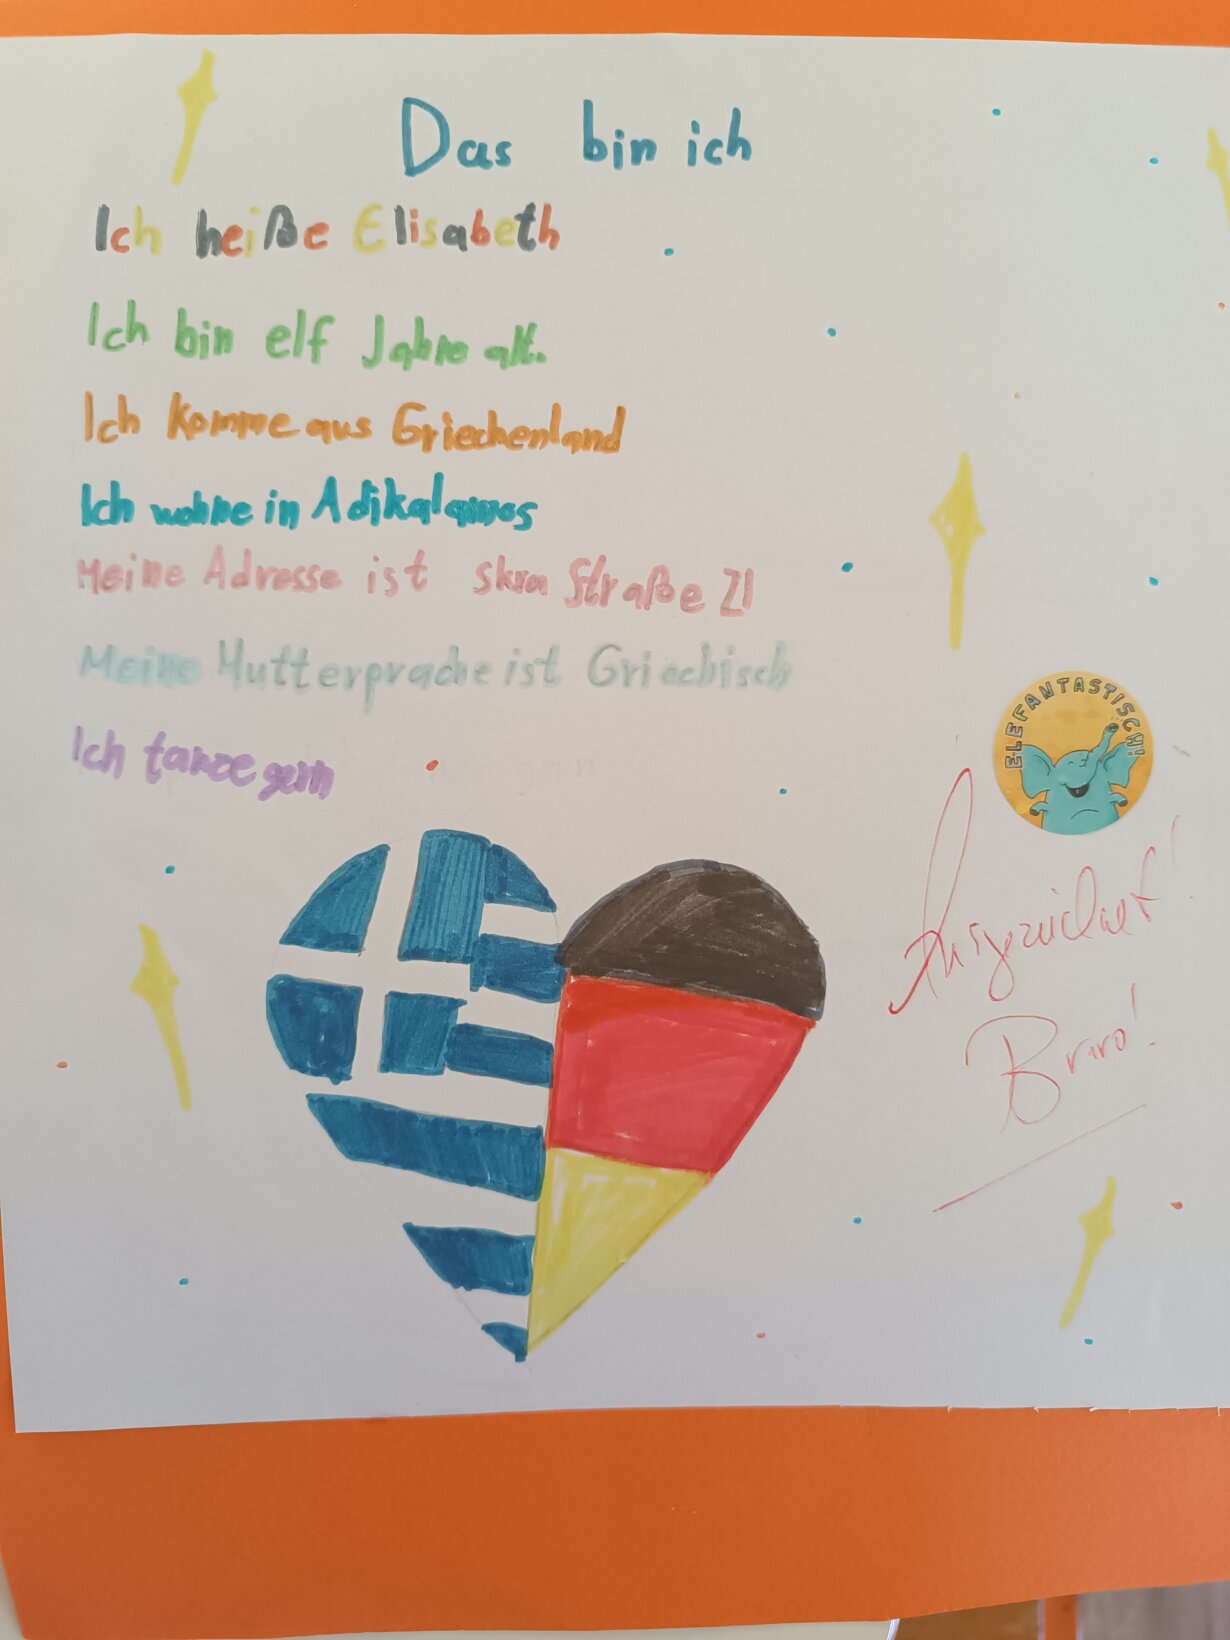 Das bin ich
Ich heiße Elisabeth
Ich bin elf Jahre alt.
Ich komme aus Griechenland
Ich wohne in Adikalamos
Meine Adresse ist skra Straße 21
Meine Mutterprache ist Griechisch
Ich tanze gern
ELEFANTASTISCH!
Ausgezeichnet!
Bravo!